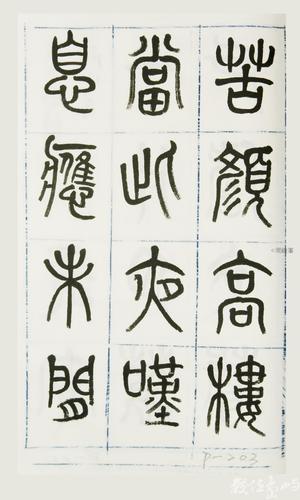 苦顏高樓
當此夜嘆
息應未閒
P-203